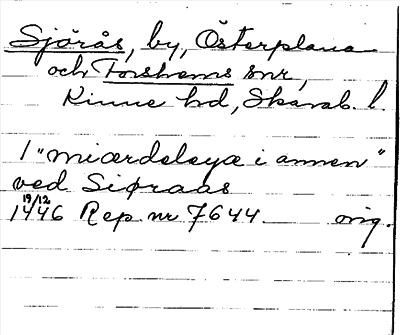 Sjörås, by, Österplana
och Forshems snr,
Kinne hd, Skarab. l.
1 "miærdeleyæ i annen"
ved Siøraas
19/12
1446 Rep. nr 7644 orig.